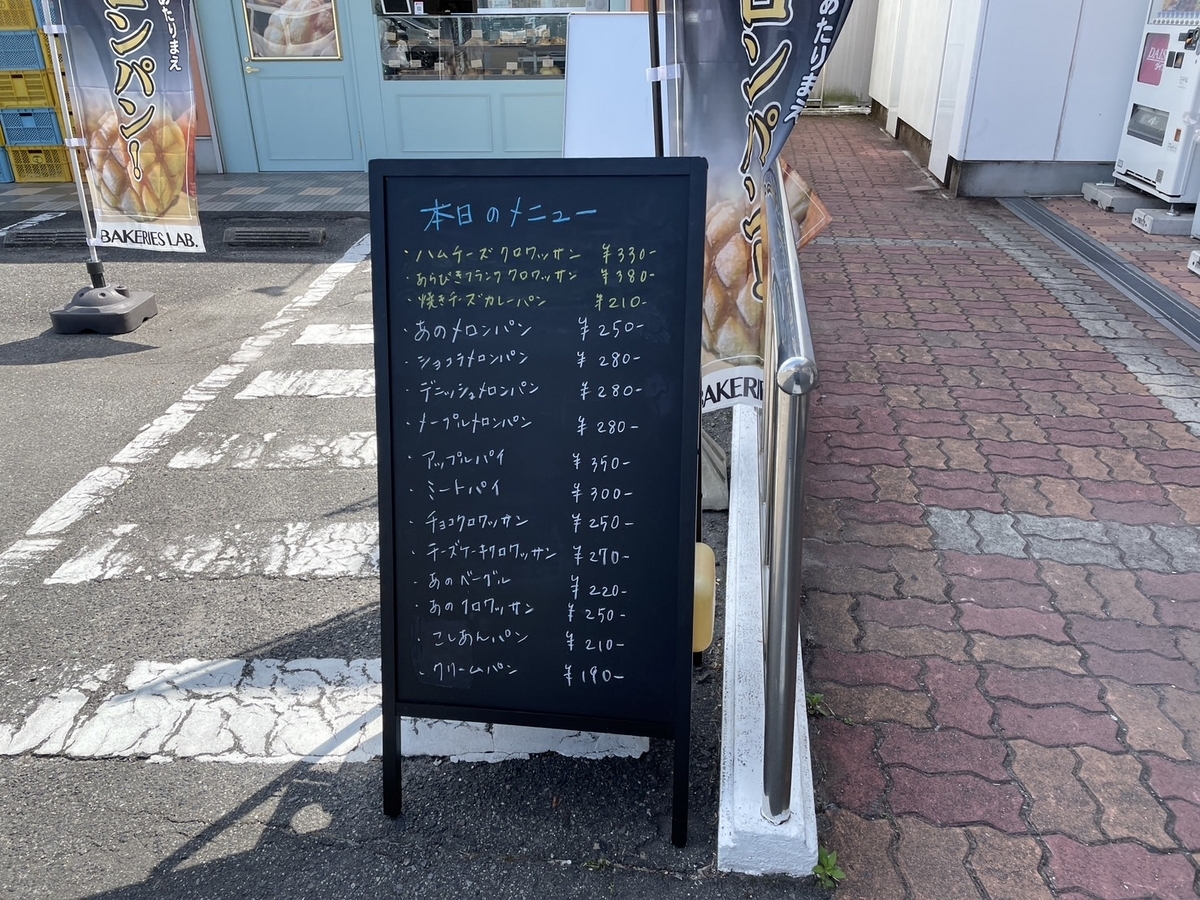 めたりまえ
ロンパン!
BAKERIES LAB.
本日のメニュー
・ハムチーズクロワッサン ¥330-
・あらびきフランククロワッサン ¥380-
・焼きチーズカレーパン ¥210-
・あのメロンパン ¥250-
・ショコラメロンパン ¥280-
・デニッシュメロンパン ¥280-
・メープルメロンパン ¥280-
・アップルパイ ¥350-
・ミートパイ ¥300-
・チョコクロワッサン ¥250-
・チーズケーキクロワッサン ¥270-
・あのベーグル ¥220-
・あのクロワッサン ¥250-
・こしあんパン ¥210-
・クリームパン ¥190-
めたりまえ
ロンパン!
BAKERIE
DAIS